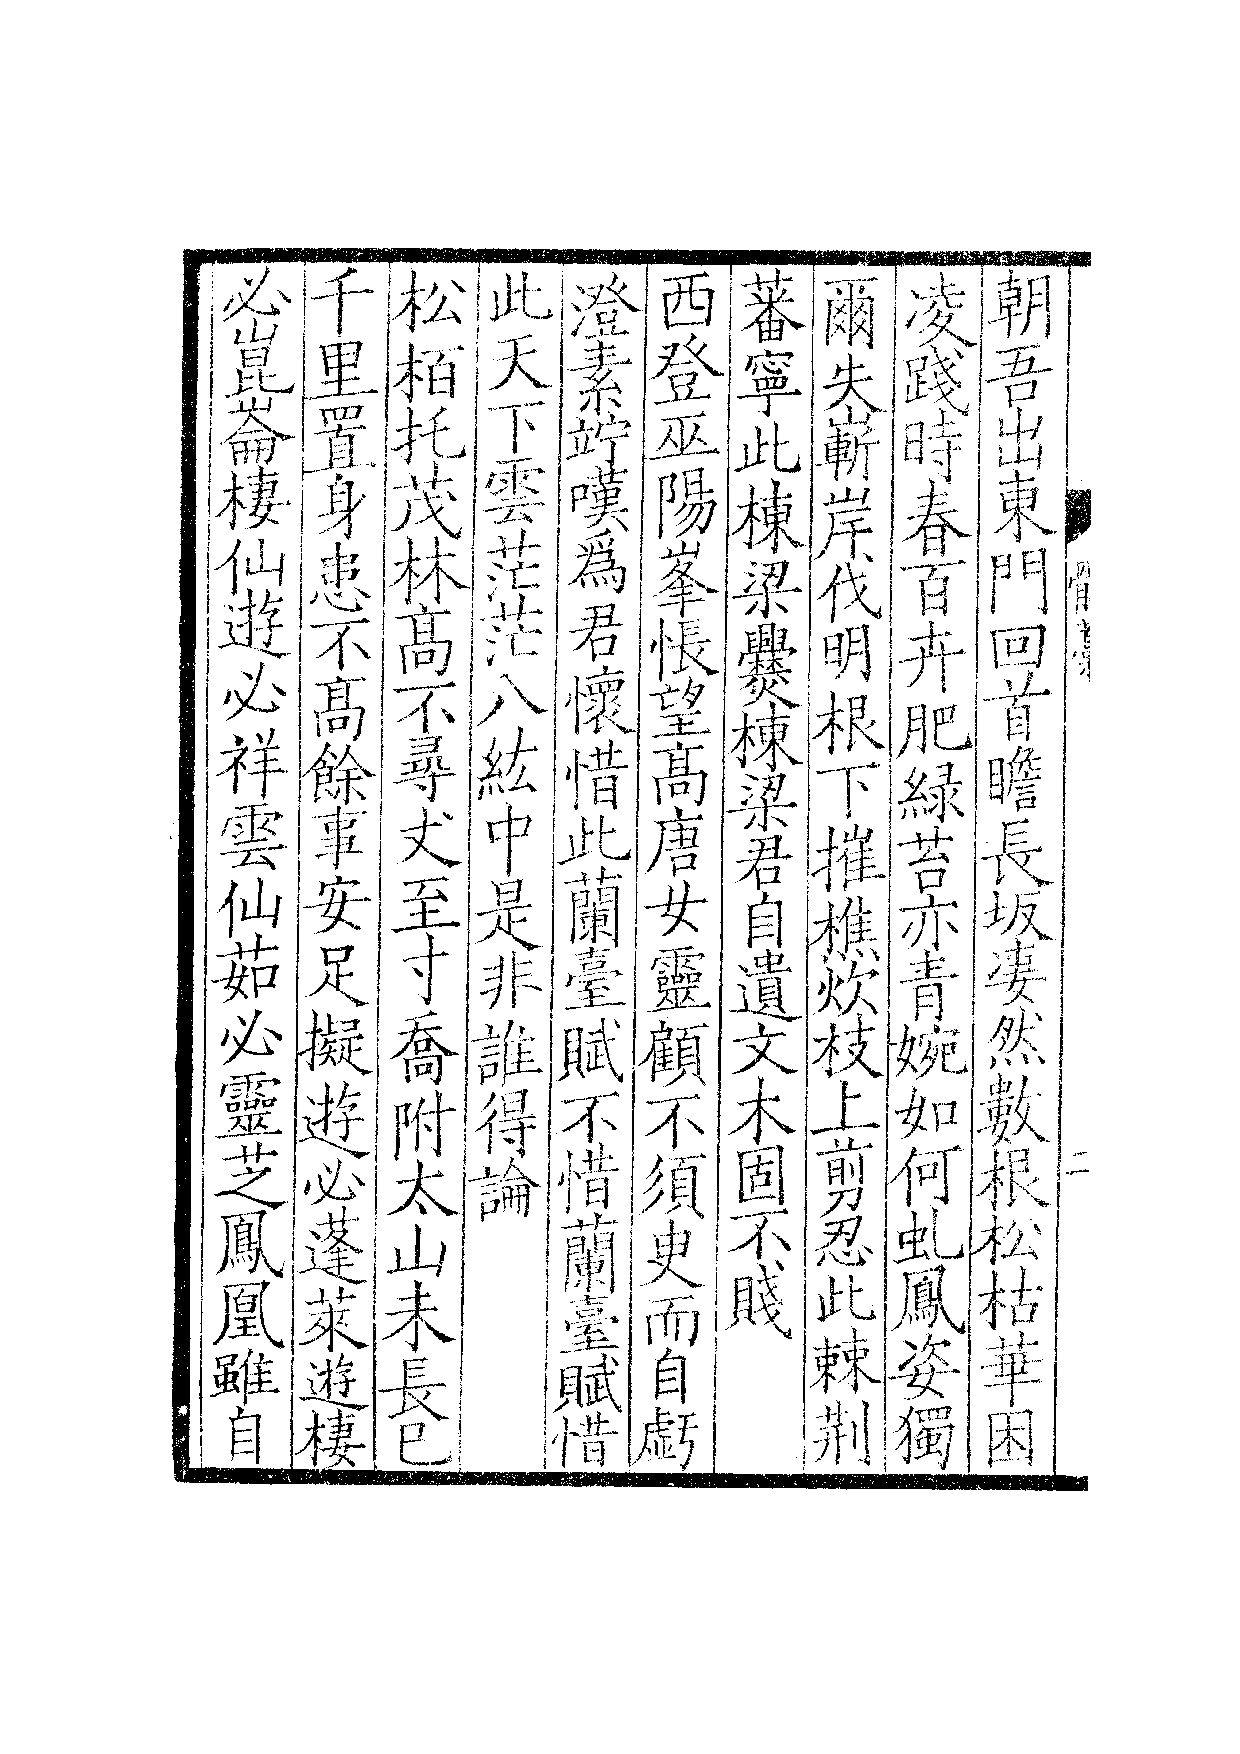 朝吾出東門回首瞻長坂凄然數根松枯華困
凌踐時春百卉肥緑苔亦青婉如何虬鳳姿獨
爾失嶄岸伐明根下摧樵炊枝上剪忍此棘荆
蕃寧此棟梁爨棟梁君自遺文木固不賤
西登巫陽峯悵望髙唐女靈顧不須史而自虧
澄素竚嘆爲君懷惜此蘭臺賦不惜蘭臺賦惜
此天下雲茫茫八紘中是非誰得論
松栢托茂林髙不尋丈至寸喬附太山未長已
千里置身患不髙餘事安足擬遊必蓬萊遊棲
必崑崙棲仙遊必祥雲仙茹必靈芝鳳凰雖自
二